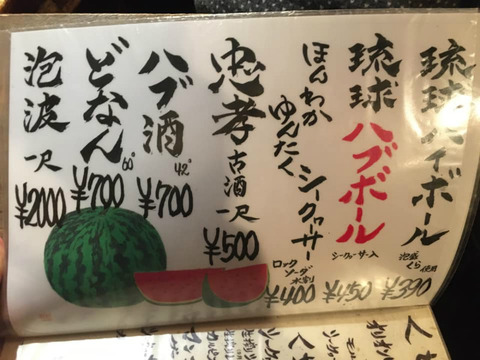 琉球ハイボール
泡盛
くら使用
¥390
琉球ハブボール
シークヮーサー入
¥450
ほんわか
ゆんたく
シークヮーサー
ロック
ソーダ
水割
¥400
忠孝古酒一尺
¥500
ハブ酒
42°
¥700
どなん
60°
¥700
泡波一尺
¥2000